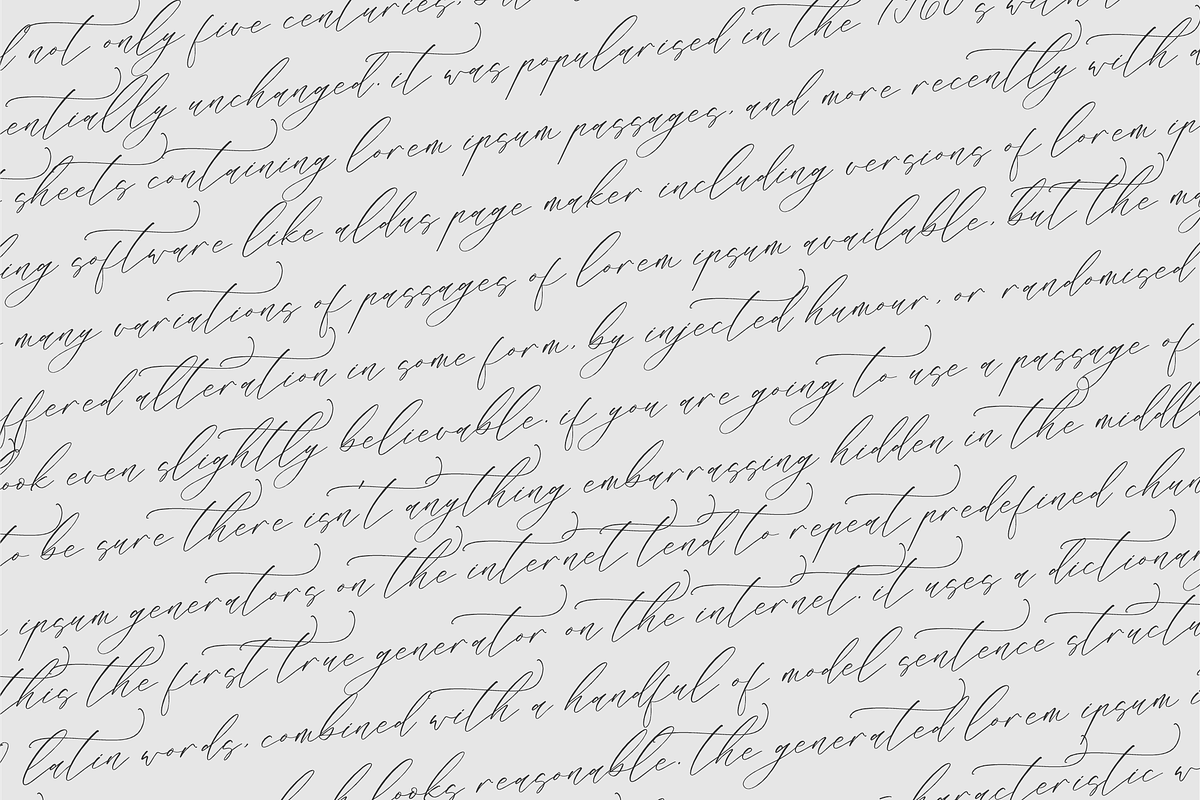 not only five centuries, but
entially unchanged. it was popularised in the 1960's with t
sheets containing lorem ipsum passages, and more recently with d
ing software like aldus page maker including versions of lorem ip
many variations of passages of lorem ipsum available, but the ma
ffered alteration in some form, by injected humour, or randomised
ook even slightly believable. if you are going to use a passage of
to be sure there isn't anything embarrassing hidden in the middl
ipsum generators on the internet tend to repeat predefined chun
this the first true generator on the internet. it uses a dictionar
latin words, combined with a handful of model sentence structu
looks reasonable. the generated lorem ipsum i
haracteristic w